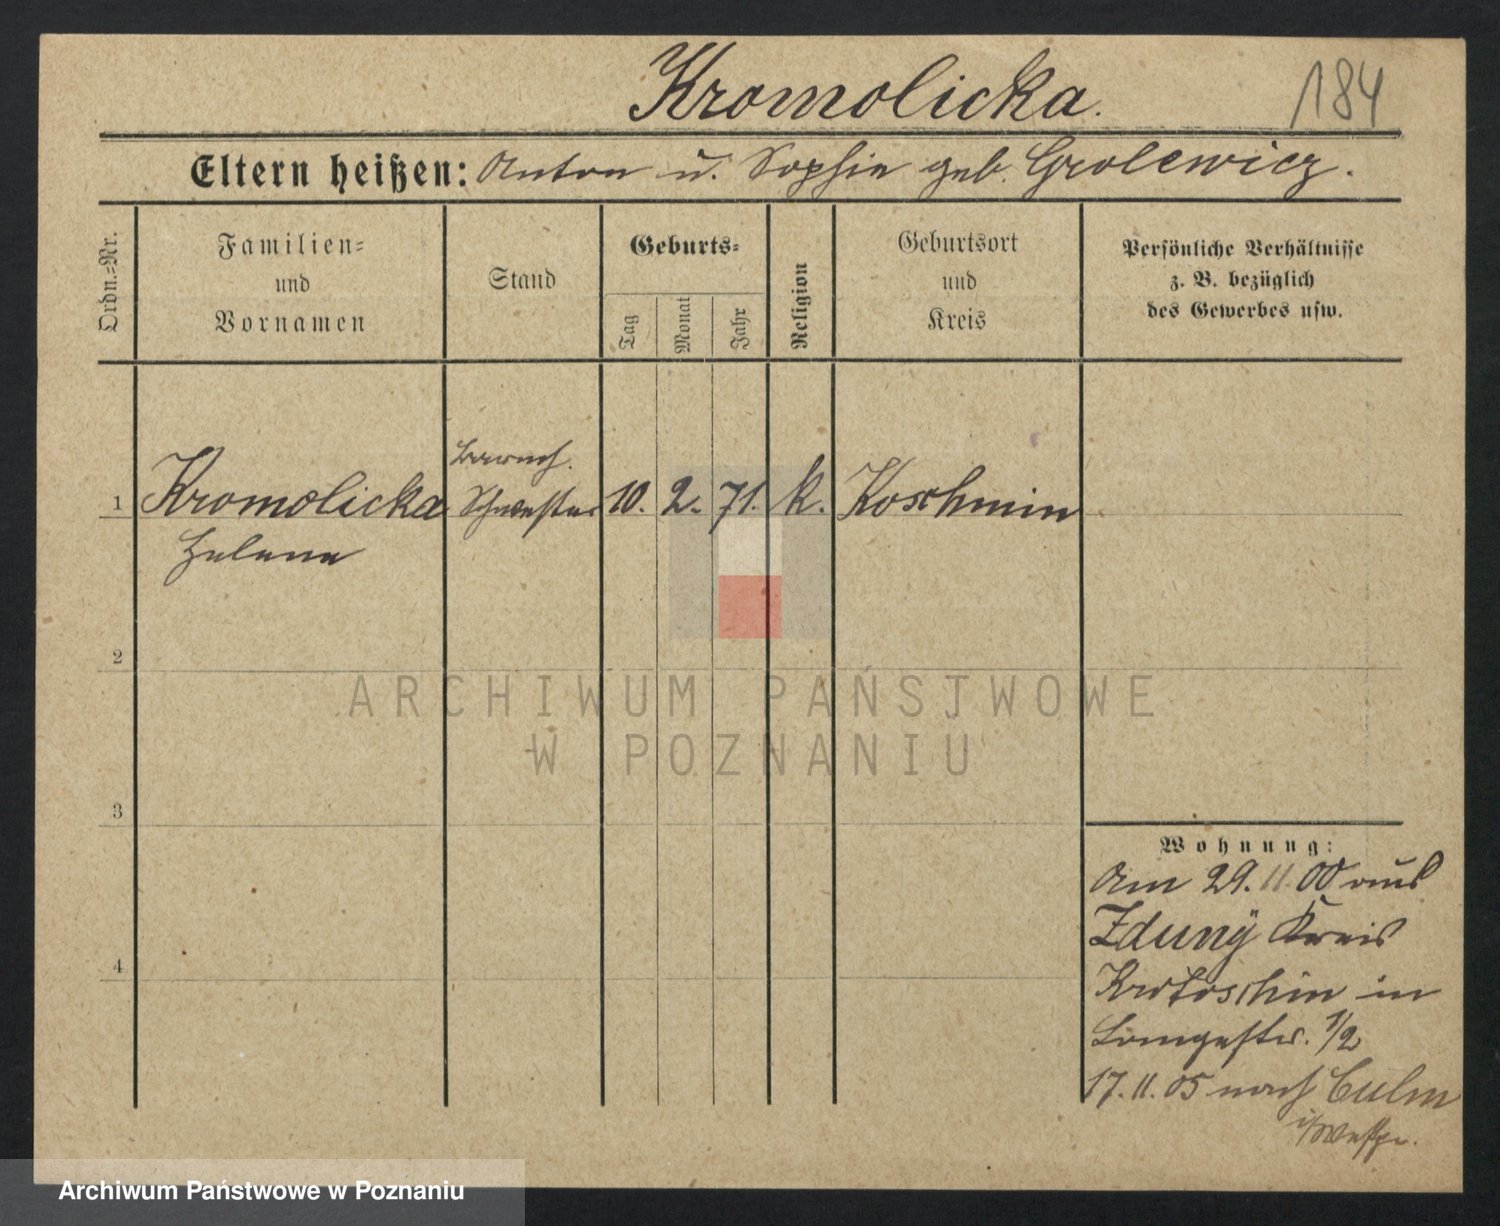 Kromolicka.
184
Eltern heißen: Anton u. Sophie geb. Grolewicz.
Ordn.=Nr.
Familien=
und
Vornamen
Stand
Geburts=
Tag
Monat
Jahr
Religion
Geburtsort
und
Kreis
Persönliche Verhältnisse
z. B. bezüglich
des Gewerbes usw.
barmh.
1 Kromolicka Schwester 10. 2. 71. k. Koschmin
Helene
2
ARCHIWUM PAŃSTWOWE
W POZNANIU
3
Wohnung:
Am 29. 11. 00 aus
Zduny Kreis
4
Krotoschin in
Langestr. 1/2
17. 11. 05 nach Culm
i/Westpr.
Archiwum Państwowe w Poznaniu